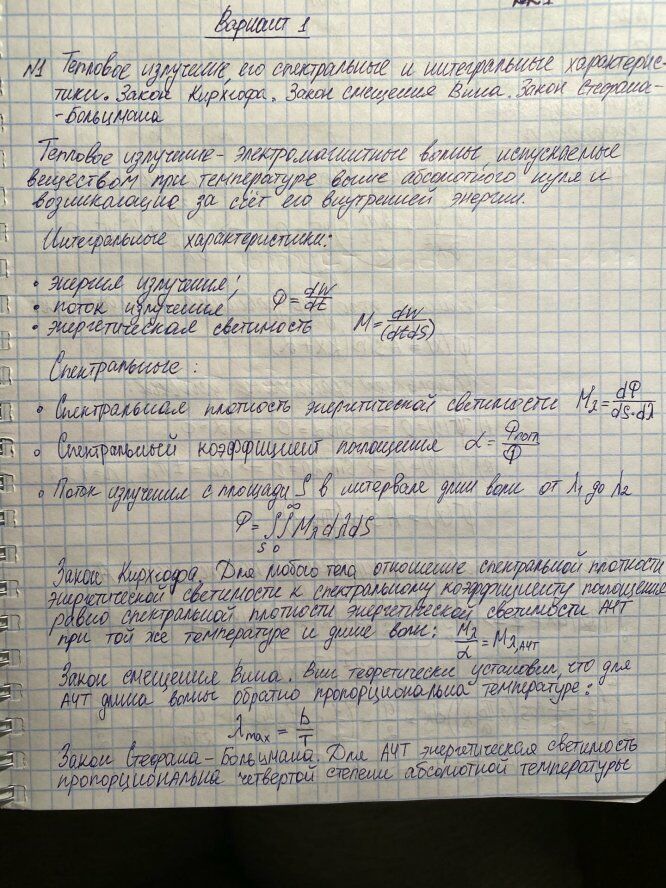 Вариант 1
№1 Тепловое излучение, его спектральные и интегральные характерис-
тики. Закон Кирхгофа. Закон смещения Вина. Закон Стефана-
-Больцмана
Тепловое излучение - электромагнитные волны, испускаемые
веществом при температуре выше абсолютного нуля и
возникающие за счёт его внутренней энергии.
Интегральные характеристики:
• энергия излучения;
• поток излучения Φ = dW/dt
• энергетическая светимость M = dW/(dtdS)
Спектральные:
• Спектральная плотность энергетической светимости Mλ = dΦ/dS·dλ
• Спектральный коэффициент поглощения α = Φпогл/Φ
• Поток излучения с площади S в интервале длин волн от λ1 до λ2
Φ = ∫S ∫0^∞ Mλ dλdS
Закон Кирхгофа. Для любого тела отношение спектральной плотности
энергетической светимости к спектральному коэффициенту поглощение
равно спектральной плотности энергетической светимости АЧТ
при той же температуре и длине волн: Mλ/α = Mλ,АЧТ
Закон смещения Вина. Вин теоретически установил, что для
АЧТ длина волны обратно пропорциональна температуре:
λmax = b/T
Закон Стефана-Больцмана. Для АЧТ энергетическая светимость
пропорциональна четвертой степени абсолютной температуры